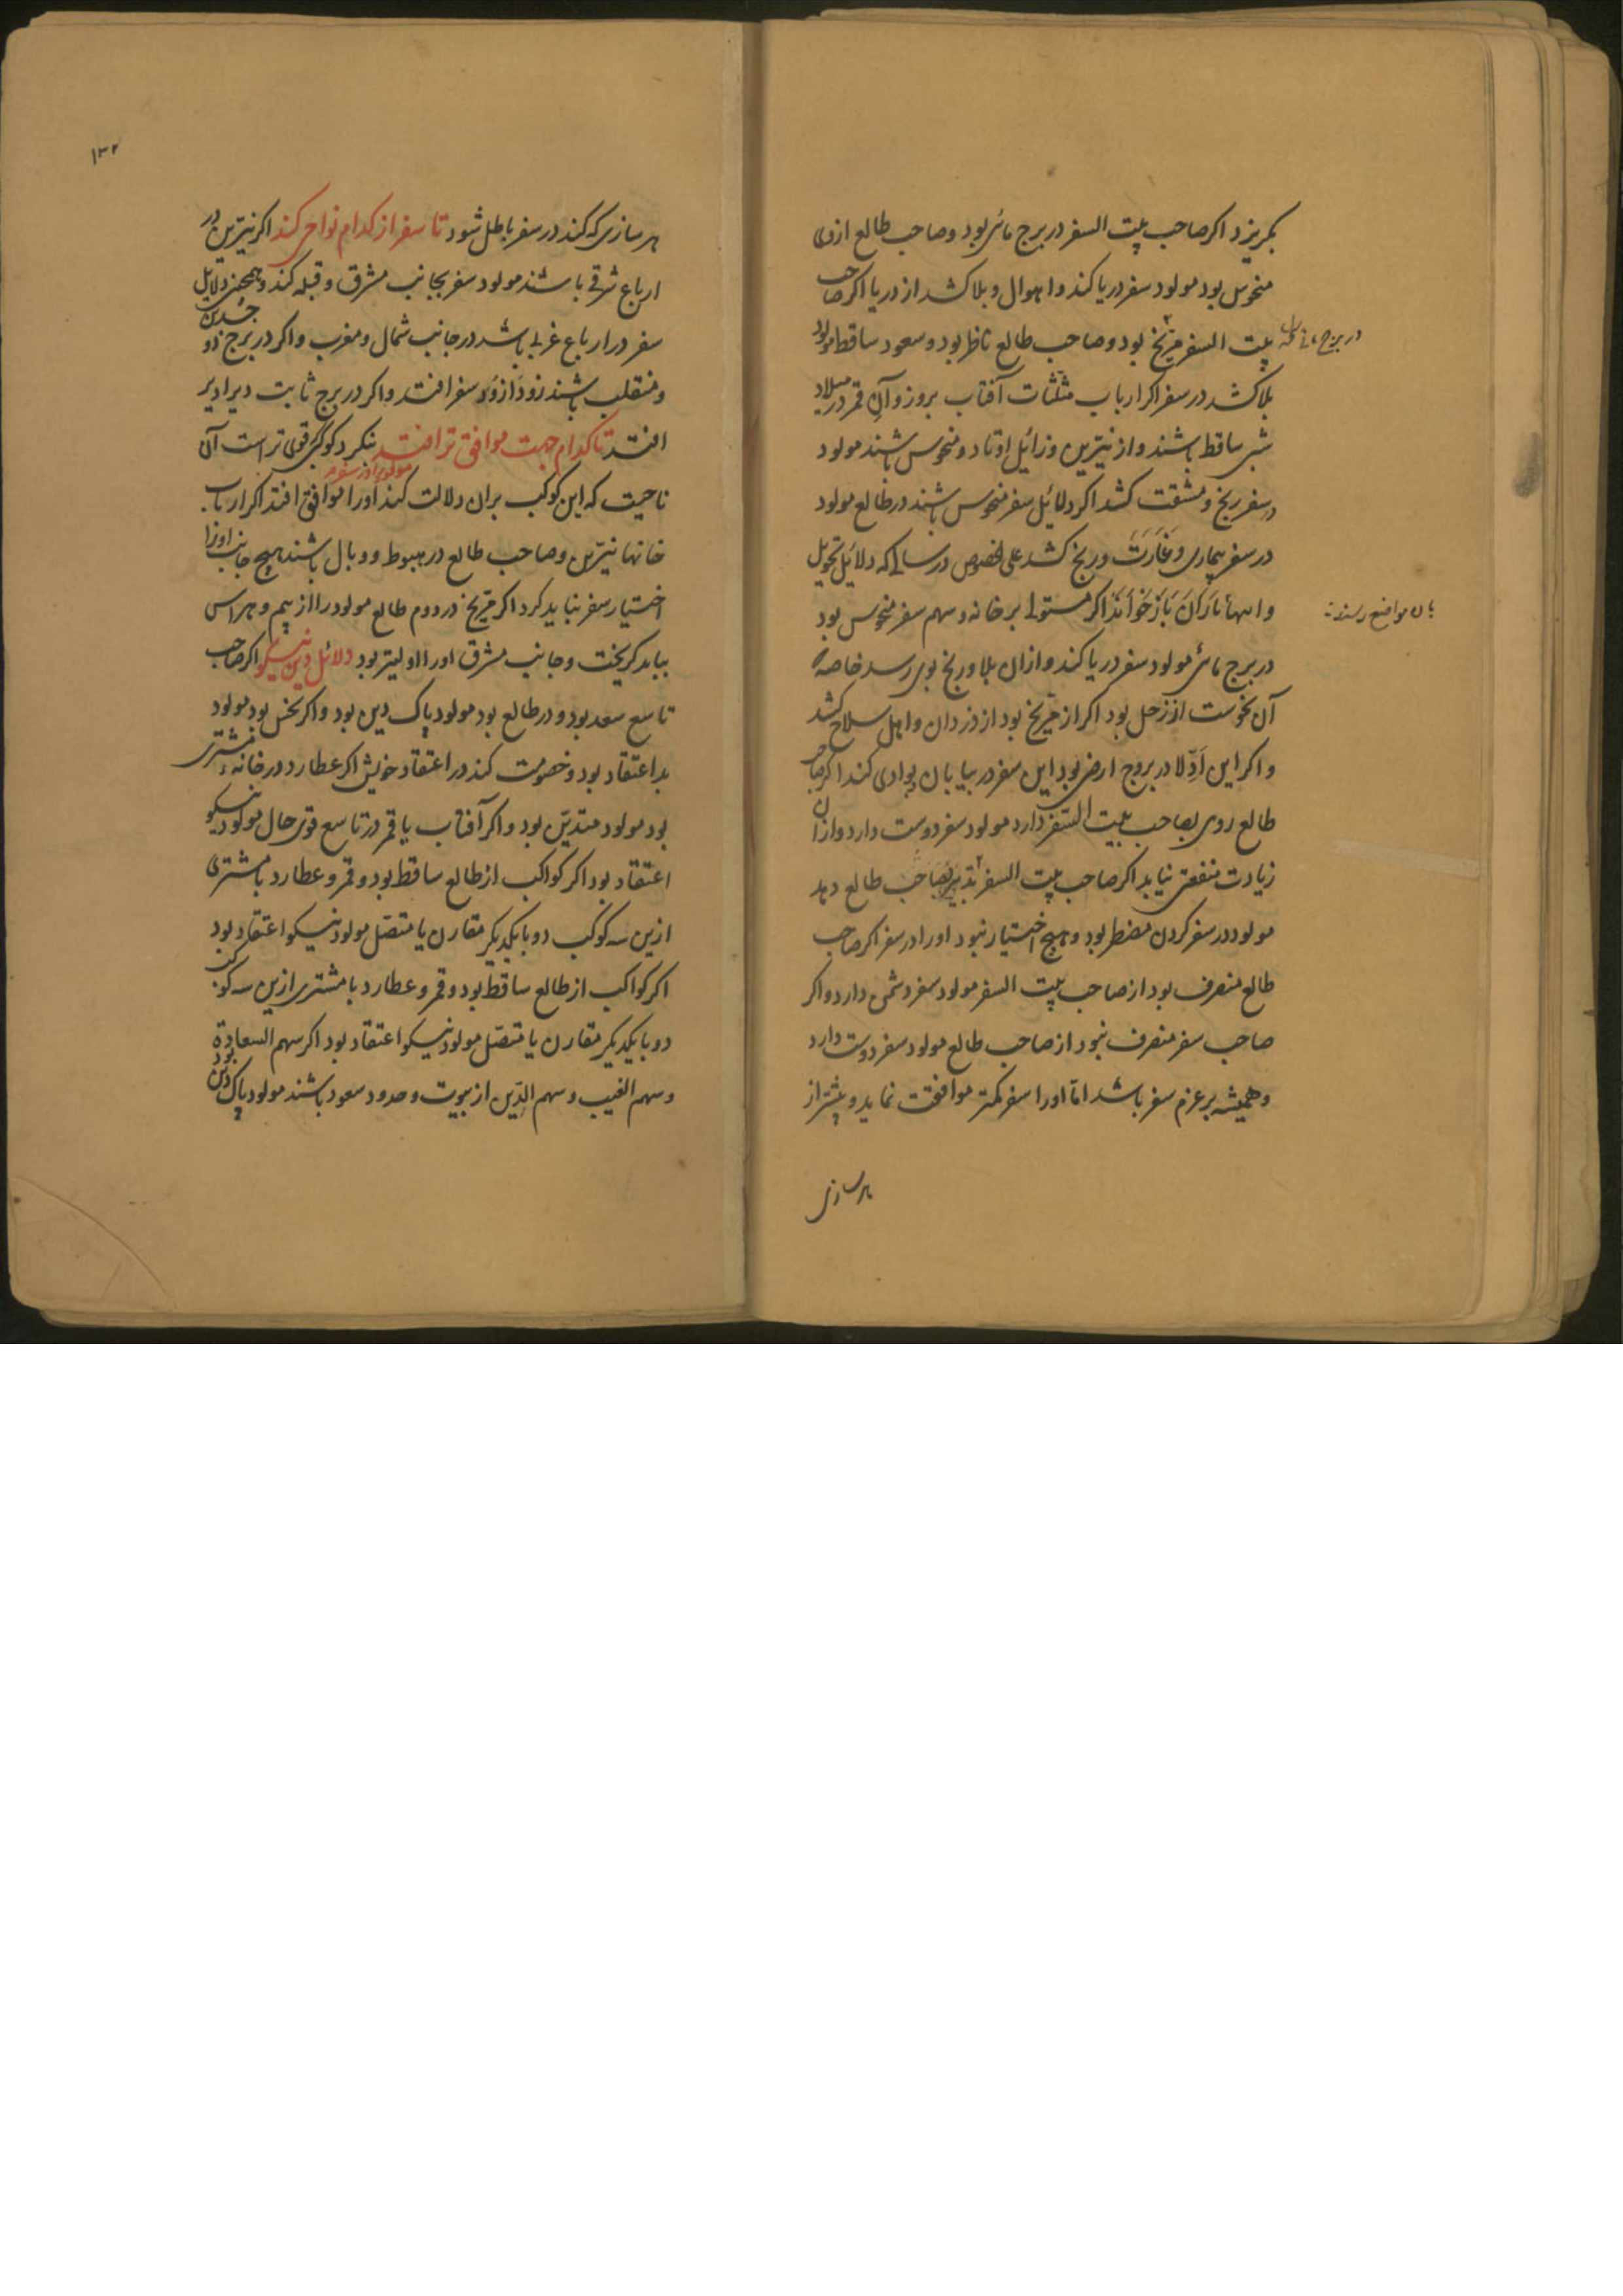 بگریزد اکر صاحب بیت السفر در برج مائی بود و صاحب طالع ازوی
منحوس بود مولود سفر دریا کند و اهوال و بلا کشد از دریا اکر صاحب
بیت السفر مریخ بود و صاحب طالع ناظر بود و سعود ساقط مولود
در برج
بلا کشد در سفر اکر ارباب مثلثات آفتاب بروز و آن قمر در میلاد
شبی ساقط باشند و از نیّرین و زائل اوتاد و منحوس باشند مولود
در سفر رنج و مشقت کشد اکر دلائل سفر منحوس باشند در طالع مولود
در سفر بیماری و غارت و رنج کشد علی الخصوص در سالی که دلائل تحویل
باز خوانند اکر مستولی بر خانه و سهم سفر منحوس بود
بان مواضع رسند
در برج مائی مولود سفر دریا کند و ازان بلا و رنج بوی رسد خاصه
آن نحوست از زحل بود اکر از مریخ بود از دزدان و اهل سلاح کشد
و اکر این ادلّا در بروج ارضی بود این سفر در بیابان بوادی کند اکر صاحب
طالع روی بصاحب بیت السفر دارد مولود سفر دوست دارد و ازان
زیادت منفعتی نیابد اکر صاحب بیت السفر تدبیر بصاحب طالع دهد
مولود در سفر کردن مضطر بود و هیچ اختیار نبود اورا در سفر اکر صاحب
طالع منصرف بود از صاحب بیت السفر مولود سفر دشمن دارد و اکر
صاحب سفر منصرف نبود از صاحب طالع مولود سفر دوست دارد
و همیشه بر عزم سفر باشد امّا اورا سفر کمتر موافقت نماید و بیشتر از
هر سازی
۱۳۲
هر سازی که کند در سفر باطل شود تا سفر از کدام نواحی کند اکر نیّرین در
ارباع شرقی باشند مولود سفر بجانب مشرق و قبله کند و همچنین دلایل
سفر در ارباع غربی باشد در جانب شمال و مغرب و اکر در برج ذو جسدین
و منقلب باشند زود از زود سفر افتد و اکر در برج ثابت دیرا دیر
افتد تا کدام جهت موافق تر افتد بنکرد کوکبی قوی تر است آن
ناحیت که این کوکب بران دلالت کند اورا موافق افتد اکر ارباب
مولود را در سفر
خانها نیّرین و صاحب طالع در هبوط و وبال باشند هیچ جانب اورا
اختیار سفر نباید کرد اکر مریخ در دوم طالع مولود را از بیم و هراس
بباید کریخت و جانب مشرق اورا اولیتر بود دلائل دین نیکو اکر صاحب
تاسع سعد بود و در طالع بود مولود پاک دین بود و اکر نحس بود مولود
بد اعتقاد بود و خصومت کند در اعتقاد خویش اکر عطارد در خانه مشتری
بود مولود متدیّن بود و اکر آفتاب یا قمر در تاسع قوی حال مولود نیکو
اعتقاد بود اکر کواکب از طالع ساقط بود و قمر و عطارد با مشتری
ازین سه کوکب دو با یکدیکر مقارن یا متصّل مولود نیکو اعتقاد بود
اکر کواکب از طالع ساقط بود و قمر و عطارد با مشتری ازین سه کوکب
دو با یکدیکر مقارن یا متصّل مولود نیکو اعتقاد بود اکر سهم السعادة
و سهم الغیب و سهم الدّین از بیوت و حدود سعود باشند مولود پاک دین بود